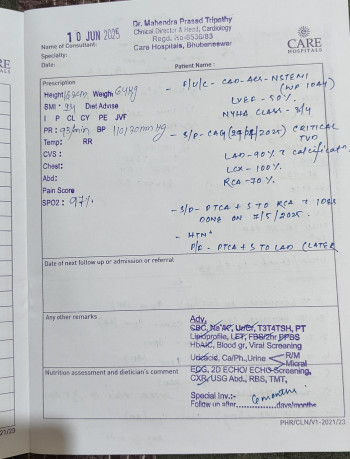 10 JUN 2025
Dr. Mahendra Prasad Tripathy
Clinical Director & Head, Cardiology
Regd. No-6536/83
Care Hospitals, Bhubaneswar
CARE
HOSPITALS
Name of Consultant:
Specialty:
Date:
Patient Name :
Prescription
Height Weight 64kg
BMI : 24 Diet Advise
I P CL CY PE JVF
PR : 93/min BP 110/70mmHg
Temp: RR
CVS :
Chest:
Abd:
Pain Score
SPO2 : 97%
- F/U/C - CAD-ACS-NSTEMI
LVEF - 50%.
NYHA CLASS - 3/4
- S/P- CAG CRITICAL
TVD
LAD - 90% calcification
LCX - 100%
RCA - 70%
- S/P- PTCA + S TO RCA
DONE ON 7/5/2025.
- HTN+
P/F - PTCA + S TO LAD (LATER
Date of next follow up or admission or referral
Any other remarks
Adv.
CBC, Na+/K+, Ur/Cr, T3T4TSH, PT
Lipidprofile, LFT, FBS/2hr PPBS
HbAIC, Blood gr, Viral Screening
Uricacid, Ca/Ph., Urine R/M
Micral
Nutrition assessment and dietician's comment
ECG, 2D ECHO/ ECHO Screening,
CXR, USG Abd., RBS, TMT,
Special Inv.:-
6 months
Follow up after..............days/months
PHR/CLN/V1-2021/23
21/23